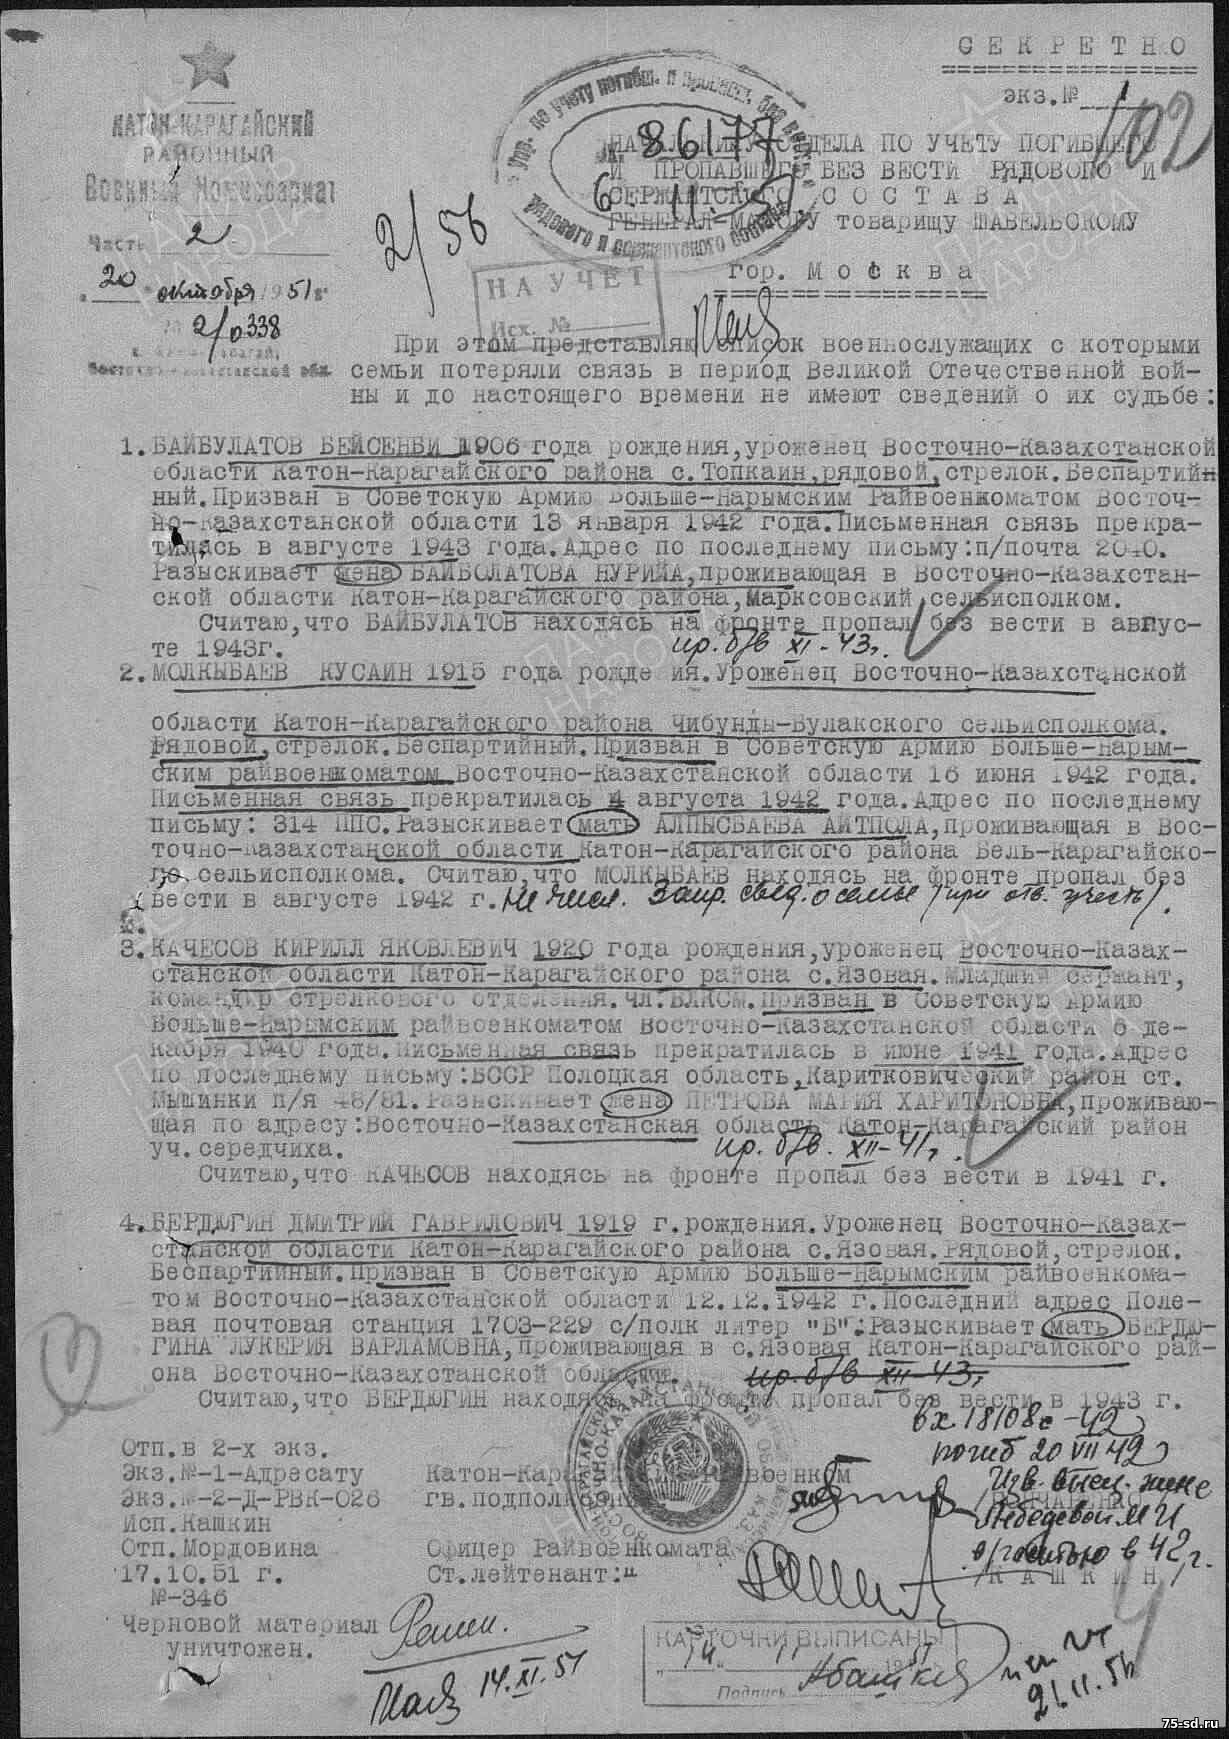 СЕКРЕТНО
экз.№ 1
102
КАТОН-КАРАГАЙСКИЙ
РАЙОННЫЙ
Военный Комиссариат
Часть 2
"20" октября 1951 г.
№ 2/0338
Восточно-Казахстанской обл.
Упр. по учету погибш. и пропавш. без вести
рядового и сержантского состава
вх. 86177
6. 11. 51
2/56
НАЧАЛЬНИКУ ОТДЕЛА ПО УЧЕТУ ПОГИБШЕГО
И ПРОПАВШЕГО БЕЗ ВЕСТИ РЯДОВОГО И
СЕРЖАНТСКОГО СОСТАВА
ГЕНЕРАЛ-МАЙОРУ товарищу ШАВЕЛЬСКОМУ
гор. Москва
НА УЧЕТ
Исх. №
При этом представляю список военнослужащих с которыми
семьи потеряли связь в период Великой Отечественной вой-
ны и до настоящего времени не имеют сведений о их судьбе:
1. БАЙБУЛАТОВ БЕЙСЕНБИ 1906 года рождения,уроженец Восточно-Казахстанской
области Катон-Карагайского района с.Топкаин,рядовой,стрелок.Беспартий
ный.Призван в Советскую Армию Больше-Нарымским Райвоенкоматом Восточ-
но-Казахстанской области 13 января 1942 года.Письменная связь прекра-
тилась в августе 1943 года.Адрес по последнему письму:п/почта 2040.
Разыскивает жена БАЙБОЛАТОВА НУРИЙА,проживающая в Восточно-Казахстан-
ской области Катон-Карагайского района,Марксовский сельисполком.
Считаю,что БАЙБУЛАТОВ находясь на фронте пропал без вести в авгус-
те 1943г.
пр. б/в XI-43г.
2. МОЛКЫБАЕВ КУСАИН 1915 года рожде ия.Уроженец Восточно-Казахстанской
области Катон-Карагайского района Чибунды-Булакского сельисполкома.
Рядовой,стрелок.Беспартийный.Призван в Советскую Армию Больше-Нарым-
ским райвоенкоматом Восточно-Казахстанской области 16 июня 1942 года.
Письменная связь прекратилась 4 августа 1942 года.Адрес по последнему
письму: 314 ППС.Разыскивает мать АЛПЫСБАЕВА АЙТПОЛА,проживающая в Вос-
точно-Казахстанской области Катон-Карагайского района Бель-Карагайско-
го сельисполкома. Считаю,что МОЛКЫБАЕВ находясь на фронте пропал без
вести в августе 1942 г. Не числ. Запр. свед. о семье (при отв. учесть).
3. КАЧЕСОВ КИРИЛЛ ЯКОВЛЕВИЧ 1920 года рождения,уроженец Восточно-Казах-
станской области Катон-Карагайского района с.Язовая.Младший сержант,
командир стрелкового отделения.Чл.ВЛКСМ.Призван в Советскую Армию
Больше-Нарымским райвоенкоматом Восточно-Казахстанской области 6 де-
кабря 1940 года.Письменная связь прекратилась в июне 1941 года.Адрес
по последнему письму:БССР Полоцкая область,Каритковический район ст.
Мышинки п/я 48/81.Разыскивает жена ПЕТРОВА МАРИЯ ХАРИТОНОВНА,проживаю-
щая по адресу:Восточно-Казахстанская область Катон-Карагайский район
уч.середчиха.
пр. б/в. XII-41г.
Считаю,что КАЧЕСОВ находясь на фронте пропал без вести в 1941 г.
4. БЕРДЮГИН ДМИТРИЙ ГАВРИЛОВИЧ 1919 г.рождения.Уроженец Восточно-Казах-
станской области Катон-Карагайского района с.Язовая.Рядовой,стрелок.
Беспартийный.Призван в Советскую Армию Больше-Нарымским райвоенкома-
том Восточно-Казахстанской области 12.12.1942 г.Последний адрес Поле-
вая почтовая станция 1703-229 с/полк литер "Б".Разыскивает мать БЕРДЮ-
ГИНА ЛУКЕРИЯ ВАРЛАМОВНА,проживающая в с.Язовая Катон-Карагайского рай-
она Восточно-Казахстанской области.
пр. б/в XII-43г
Считаю,что БЕРДЮГИН находясь на фронте пропал без вести в 1943 г.
вх. 18108с-42
погиб 20 VII 42
Изв. выс. жене
Лебедевой М И
Отп.в 2-х экз.
Экз.№-1-Адресату
Экз.№-2-Д-РВК-026
Исп.Кашкин
Отп.Мордовина
17.10.51 г.
№-346
Черновой материал
уничтожен.
Катон-Карагайский Райвоенком
гв.подполковник
Офицер Райвоенкомата
Ст.лейтенант:
/КАШКИН/
14.XI.51
КАРТОЧКИ ВЫПИСАНЫ
"14" 11 1951
Подпись
21.11.56
75-sd.ru